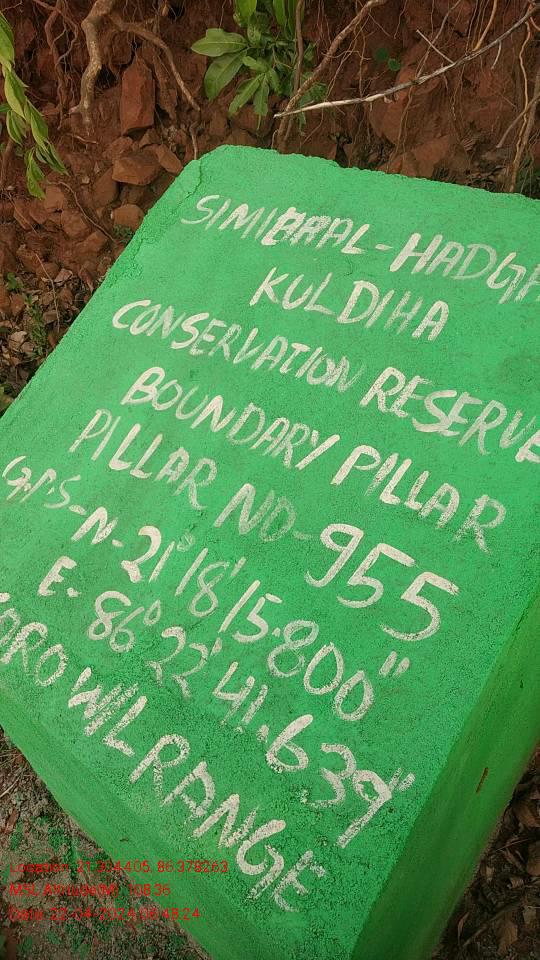 SIMILIPAL-HADGA
KULDIHA
CONSERVATION RESERVE
BOUNDARY PILLAR
PILLAR NO-955
G.P.S-N-21°18'15.800"
E- 86°22'41.639"
WILRANGE
Location: 21.304405, 86.378263
Date: 22-04-2024 08:48:24